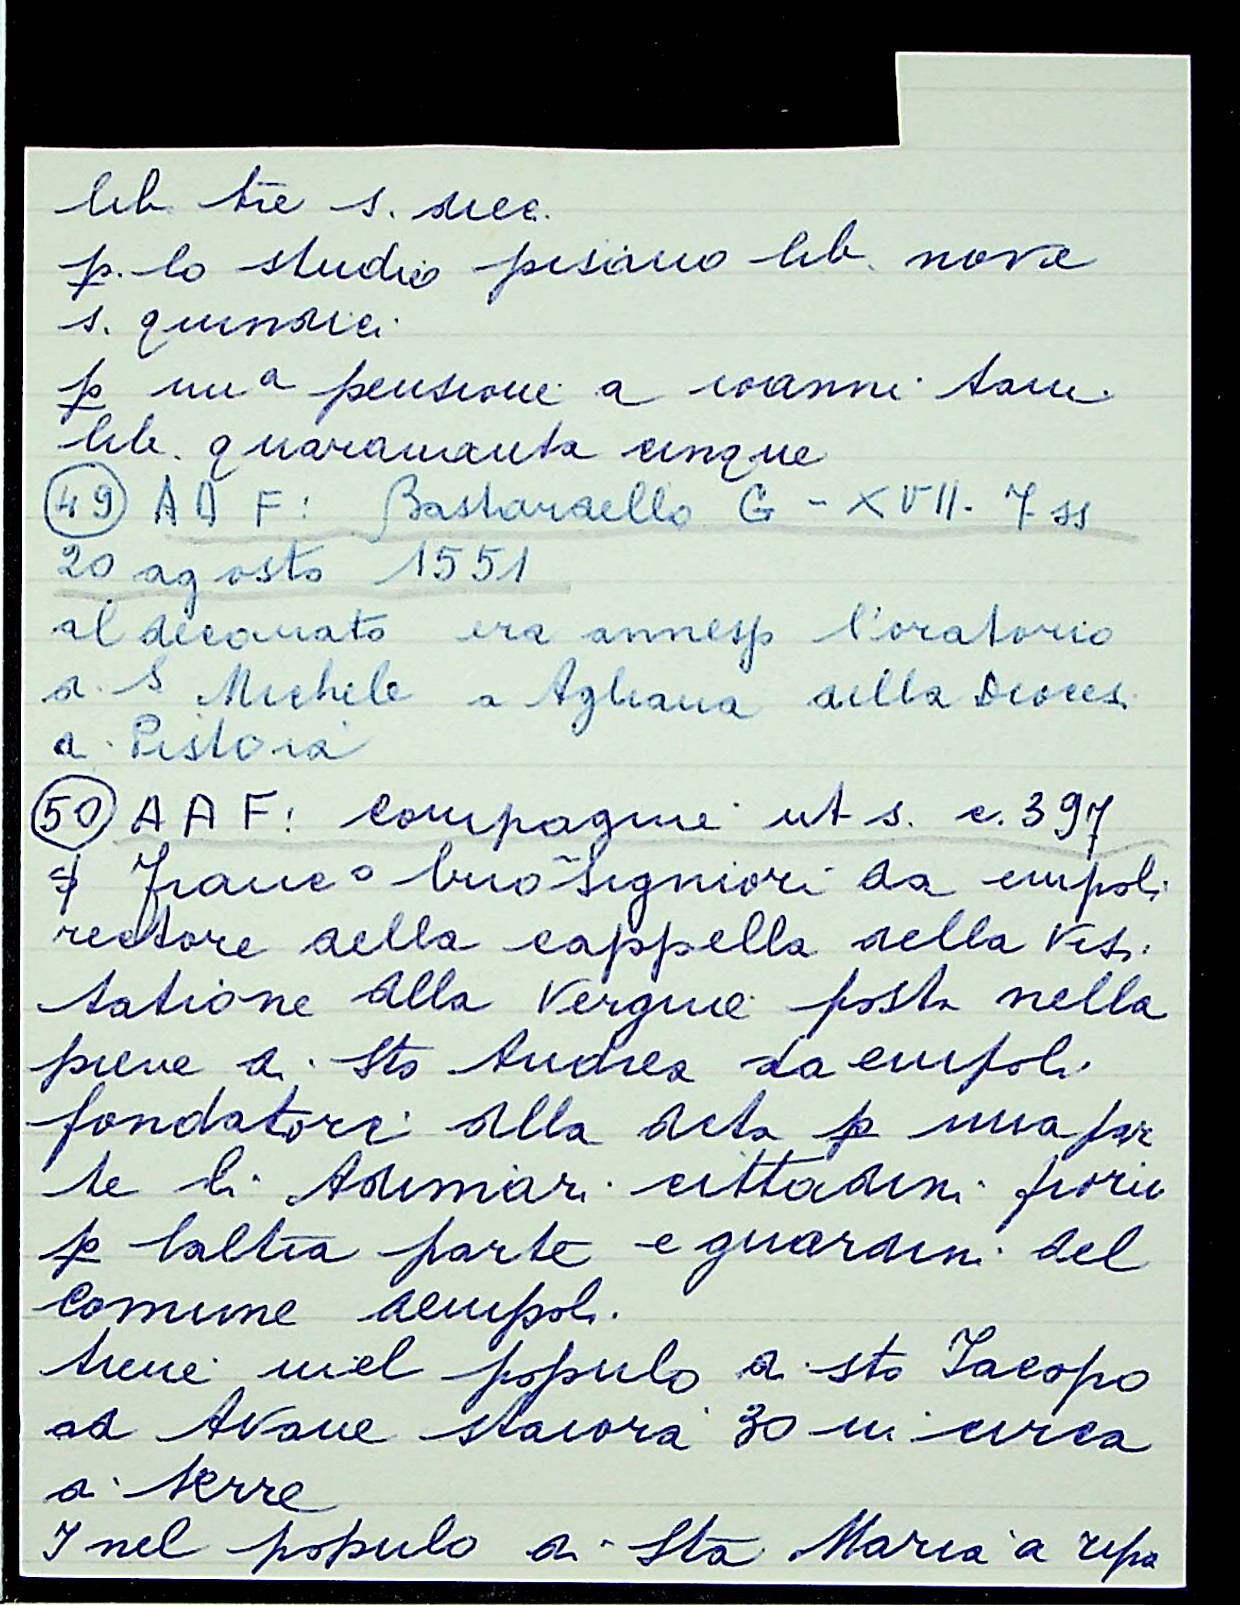 lib. tre s. diec.
p. lo studio pisano lib. nove
s. quindici
p unª pensione a ioanni
lib. quaramanta cinque
49 A A F: Bastardello G - XVII. 7 ss
20 agosto 1551
al decanato era annesso l'oratorio
di S Michele a Agliana della Dioces.
di Pistoia
50 A A F: compagnie ut s. c. 397
Francº buo~signiori da empoli
rectore della cappella della Visi
tatione della Vergine posta nella
pieve di Sto Andrea da empoli
fondatori della deta p una par
te li Adimari cittadini fiorin
p laltra parte e guardini del
Comune dempoli.
tiene nel popolo di sto Iacopo
ad Avane staiora 30 in circa
di terre
I nel popolo di Sta Maria a ripa